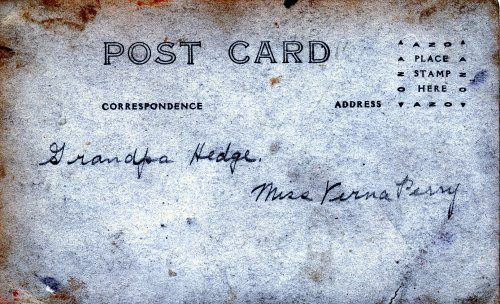 POST CARD
AZO
PLACE
STAMP
HERE
AZO
CORRESPONDENCE
ADDRESS
Grandpa Hedge.
Miss Verna Perry